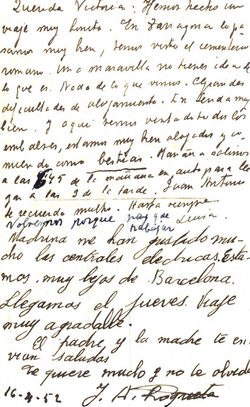 Querida Victoria: Hemos hecho un
viaje muy bonito. En Tarragona lo pa
samos muy bien, hemos visto el cementerio
romano. Una maravilla no tienes idea de
lo que es. Nada de lo que vimos.
de alojamiento. En Lerida
bien. Y aqui hemos visto los
embalses, estamos muy bien alojados y co
miendo como bestias. Mañana salimos
a las 6'45 de la mañana en auto para lle
gar a las 3 de la tarde. Juan Antonio
te recuerda mucho. Hasta siempre
Volvemos porque hay que Luisa
trabajar
Madrina me han gustado mu
cho las centrales electricas. Esta
mos, muy lejos de Barcelona.
Llegamos el jueves. Viaje
muy agradable.
El padre, y la madre te en
vian saludos
Te quiere mucho y no te olvida
16-4-52 J. A. Roqueta